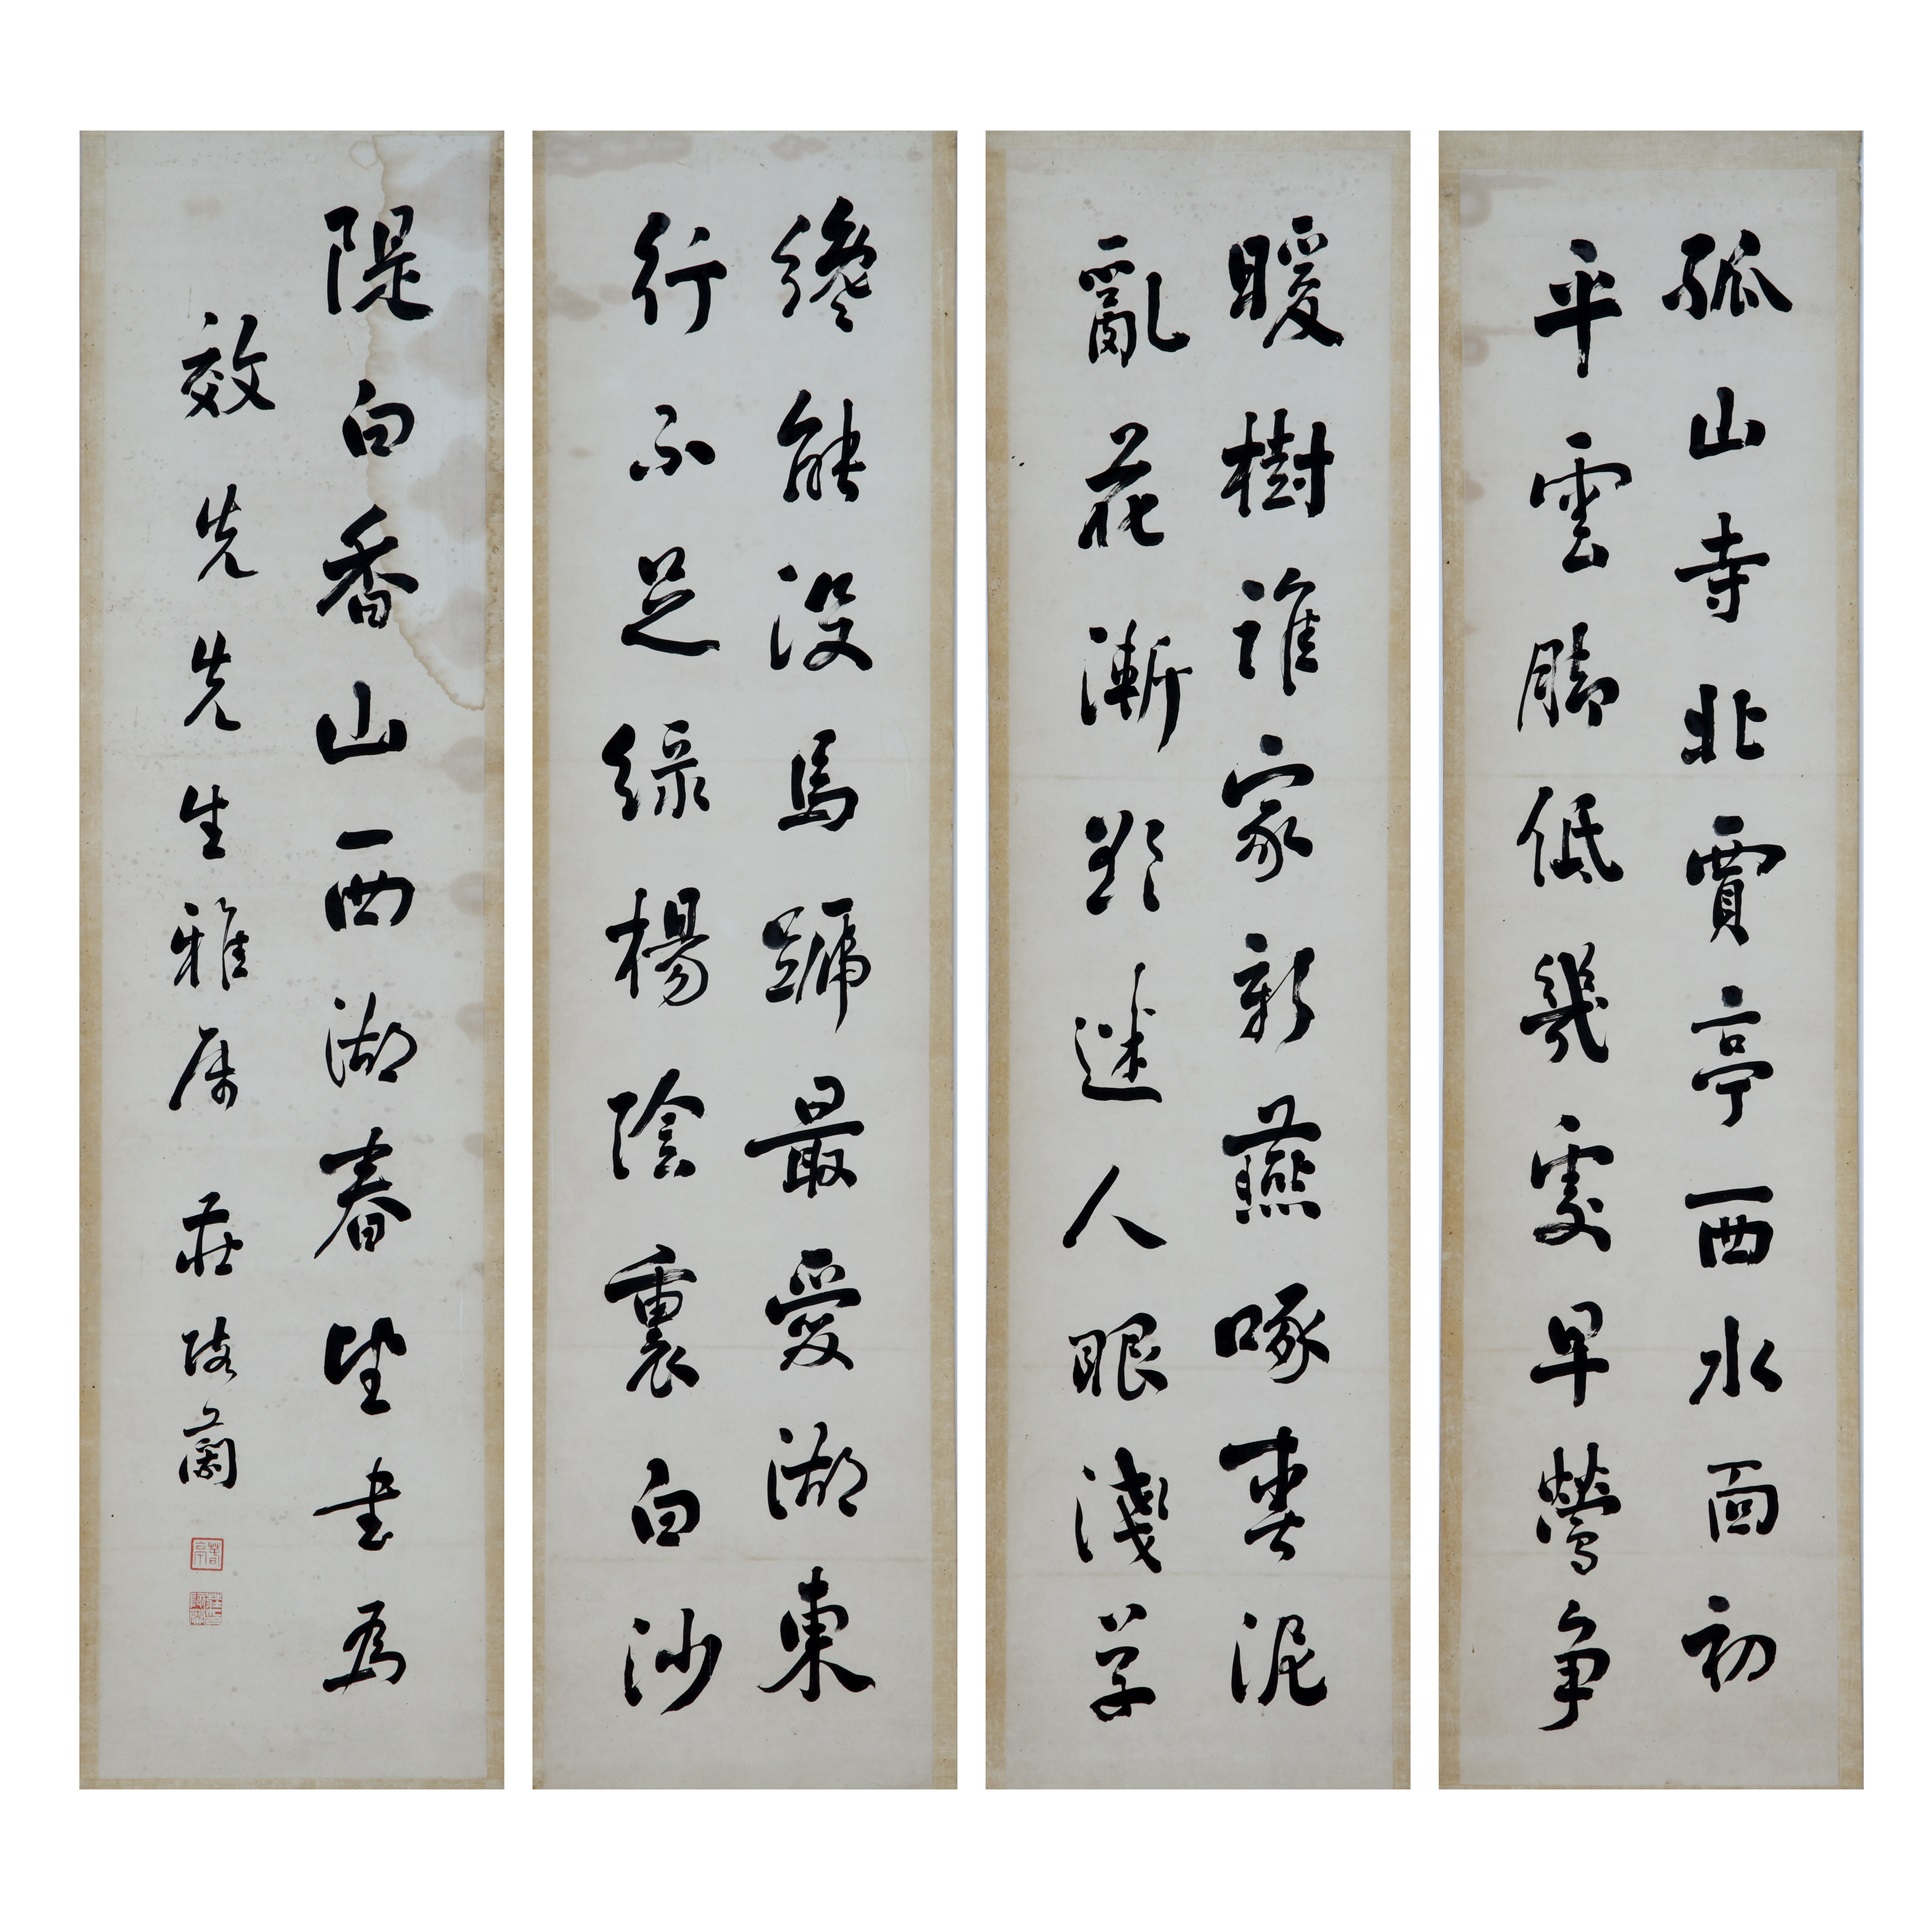 孤山寺北賈亭西水面初
平雲脚低幾處早鶯爭
暖樹誰家新燕啄春泥
亂花漸欲迷人眼淺草
纔能没馬蹏最愛湖東
行不足綠楊陰裏白沙
隄白香山西湖春望書為
效先先生雅屬 莊陔蘭